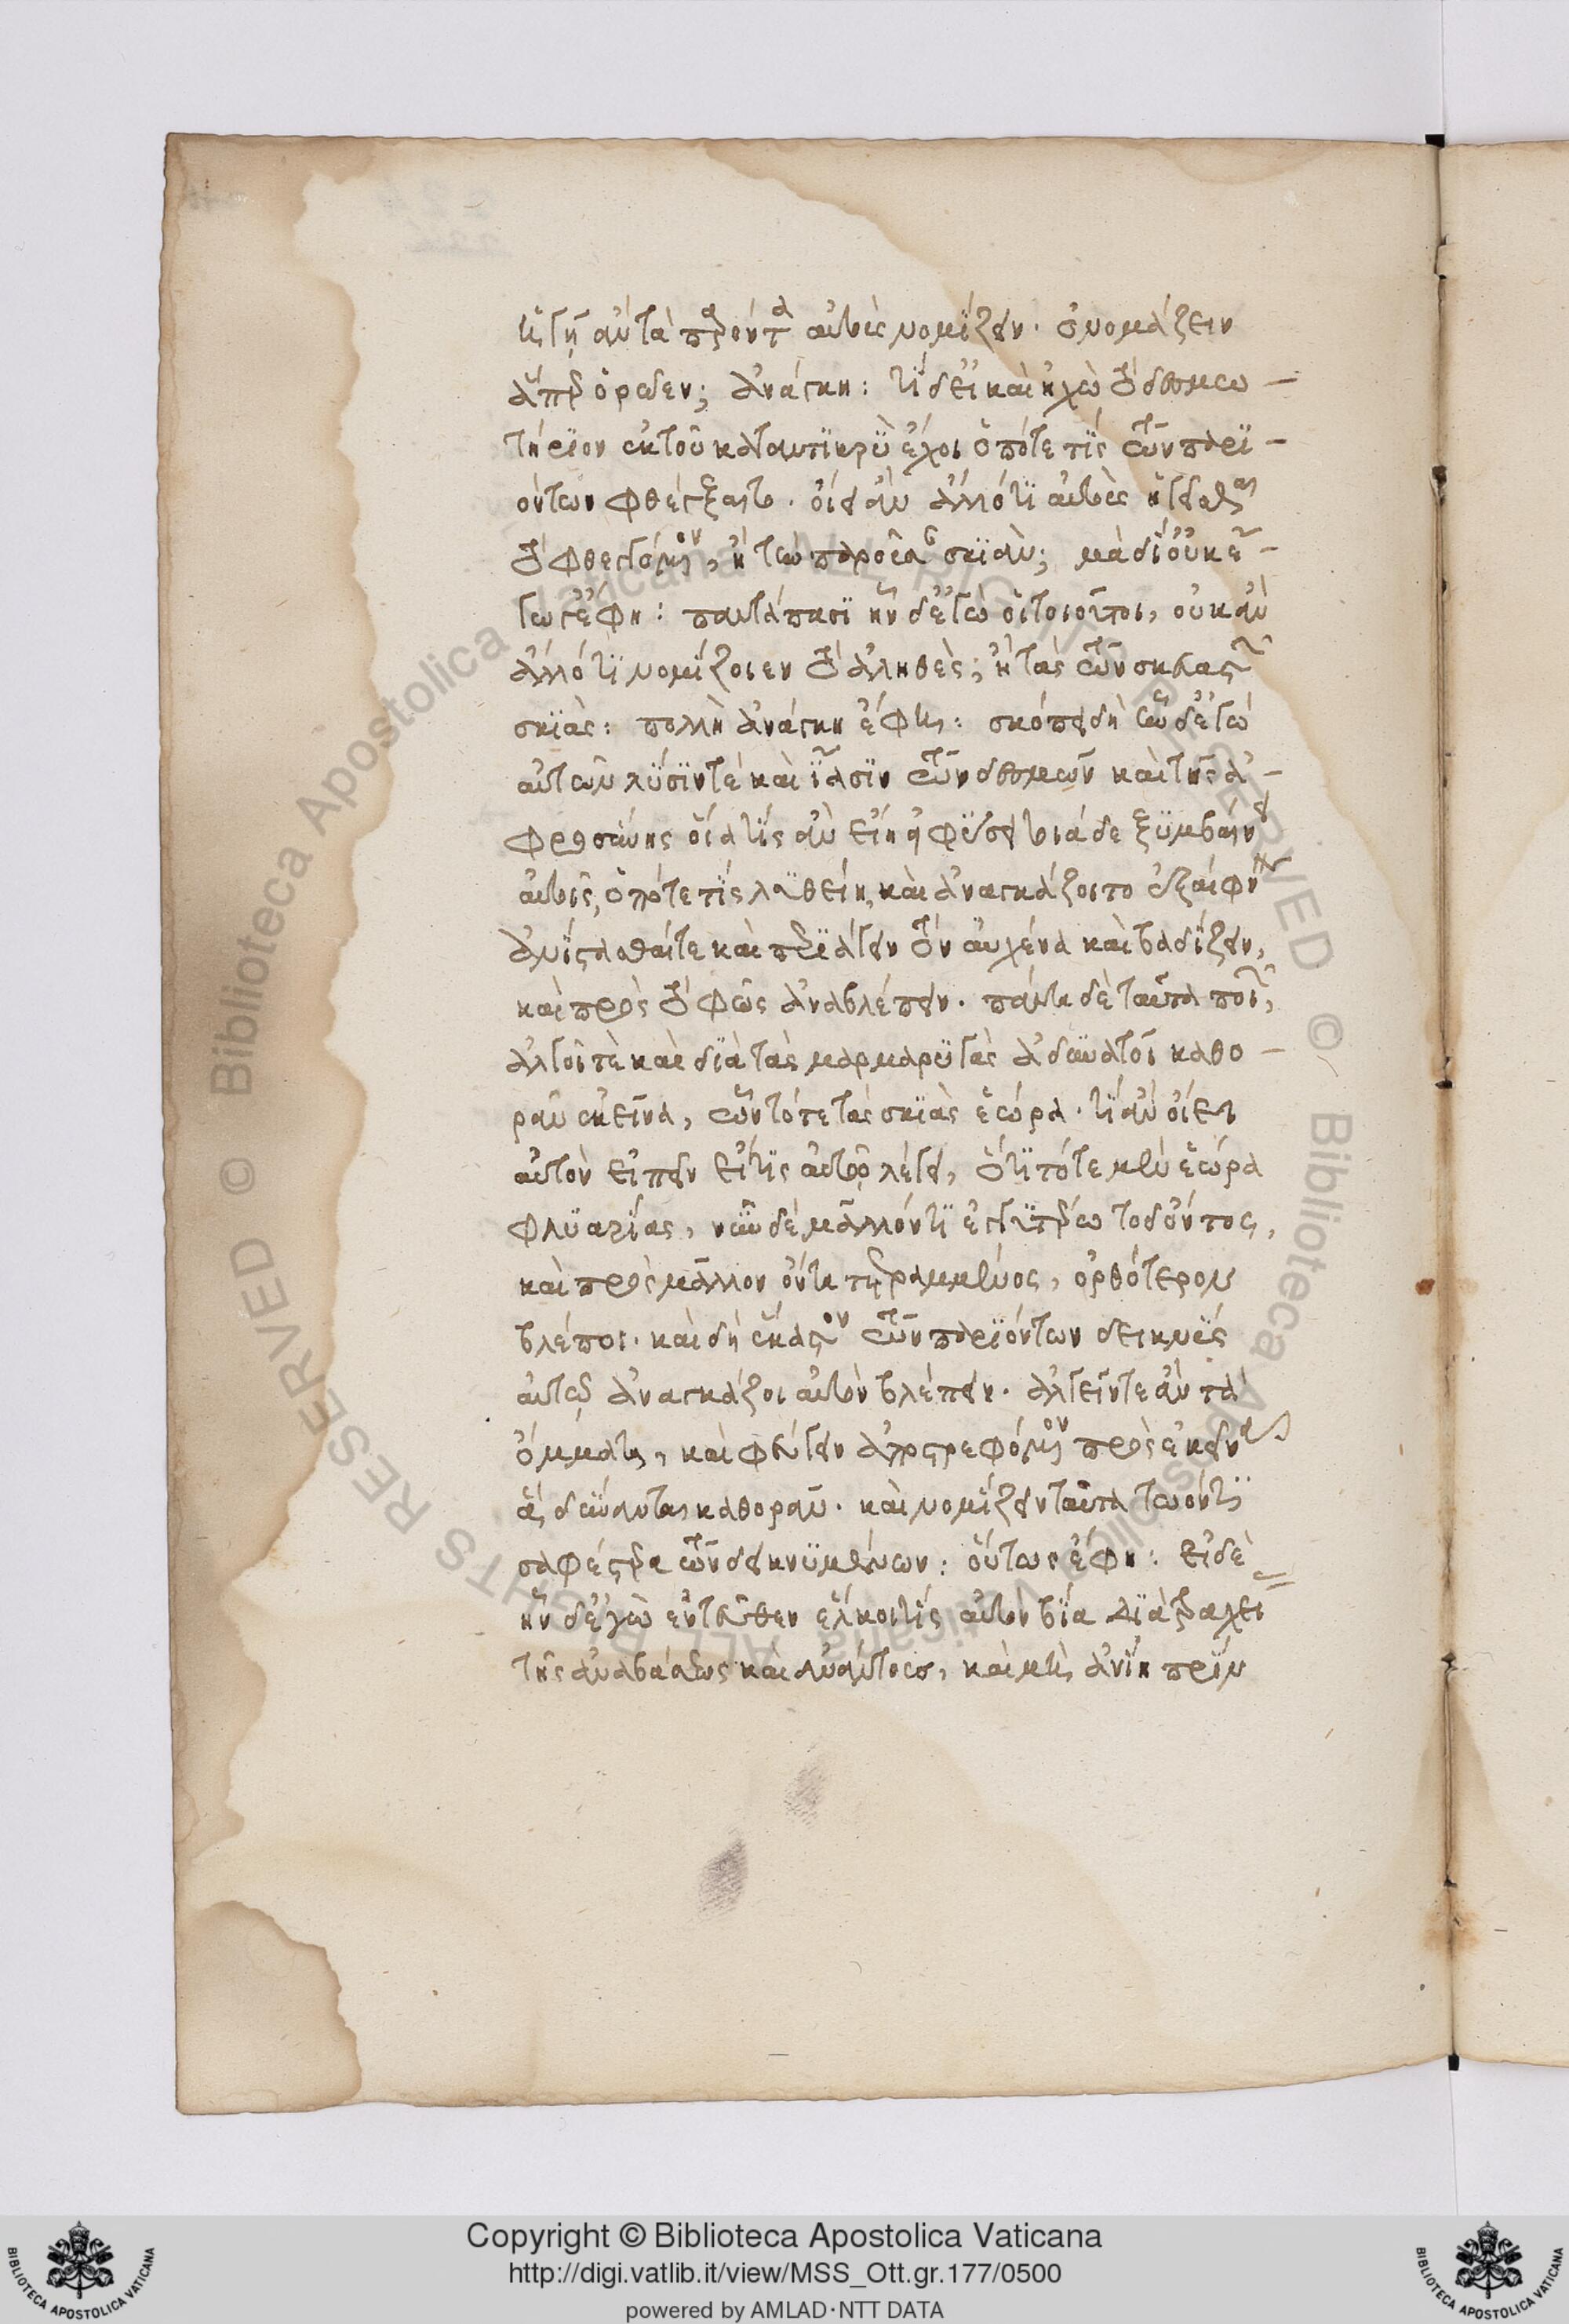 ἡγῇ αὐτὰ παρόντα αὐτοὺς νομίζειν. ὀνομάζειν
ἅπερ ὁρῷεν; ἀνάγκη: τί δ' εἰ καὶ ἠχὼ τὸ δεσμω-
τήριον ἐκ τοῦ καταντικρὺ ἔχοι ὁπότε τίς τῶν παρϊ-
όντων φθέγξαιτο. οἴει ἂν ἄλλό τι αὐτοὺς ἡγεῖσθαι
τὸ φθεγγόμενον, ἢ τὴν παριοῦσαν σκϊάν; μὰ δΐ οὐκ ἔ-
γωγ' ἔφη: παντάπασϊ ἦν δ' ἐγὼ οἱ τοιοῦτοι, οὐκ ἂν
ἄλλό τι νομίζοιεν τὸ ἀληθὲς; ἢ τὰς τῶν σκευαστῶν
σκϊὰς: πολλὴ ἀνάγκη ἔφη: σκόπει δὴ ἦν δ' ἐγώ
αὐτῶν λύσϊν τέ καὶ ἴασϊν τῶν δεσμῶν καὶ τῆς ἀ-
φροσύνης οἵα τίς ἂν εἴη εἰ φύσει τοιάδε ξυμβαίνει
αὐτοῖς, ὁπότε τὶς λυθείη, καὶ ἀναγκάζοιτο ἐξαίφνης
ἀνίστασθαί τε καὶ περϊάγειν τὸν αὐχένα καὶ βαδίζειν,
καὶ πρὸς τὸ φῶς ἀναβλέπειν. πάντα δὲ ταῦτα ποιῶν,
ἀλγοῖ τὲ καὶ δϊὰ τὰς μαρμαρυγὰς ἀδυνατοῖ καθο-
ρᾶν ἐκεῖνα, ὧν τότε τὰς σκϊὰς ἑώρα. τί ἂν οἴει
αὐτὸν εἰπεῖν εἴ τις αὐτῷ λέγει, ὅτι τότε μὲν ἑώρα
φλυαρίας, νῦν δὲ μᾶλλόν τι ἐγγυτέρω τοῦ ὄντος,
καὶ πρὸς μᾶλλον ὄντα τετραμμένος, ὀρθότερον
βλέποι. καὶ δὴ ἕκαστον τῶν παρϊόντων δεικνὺς
αὐτῷ ἀναγκάζοι αὐτὸν βλέπειν. ἀλγεῖν τε ἂν τὰ
ὄμματα, καὶ φεύγειν ἀποστρεφόμενον πρὸς ἐκεῖνα
ἃ δύναται καθορᾶν. καὶ νομίζειν ταῦτα τῷ ὄντι
σαφέστερα τῶν δεικνυμένων: οὕτως ἔφη: εἰ δὲ
ἦν δ' ἐγὼ ἐντεῦθεν ἕλκοι τίς αὐτὸν βίᾳ διὰ τραχεί
τῆς ἀναβάσεως καὶ ἀνάντους, καὶ μὴ ἀνίη πρίν
Copyright © Biblioteca Apostolica Vaticana
http://digi.vatlib.it/view/MSS_Ott.gr.177/0500
powered by AMLAD·NTT DATA